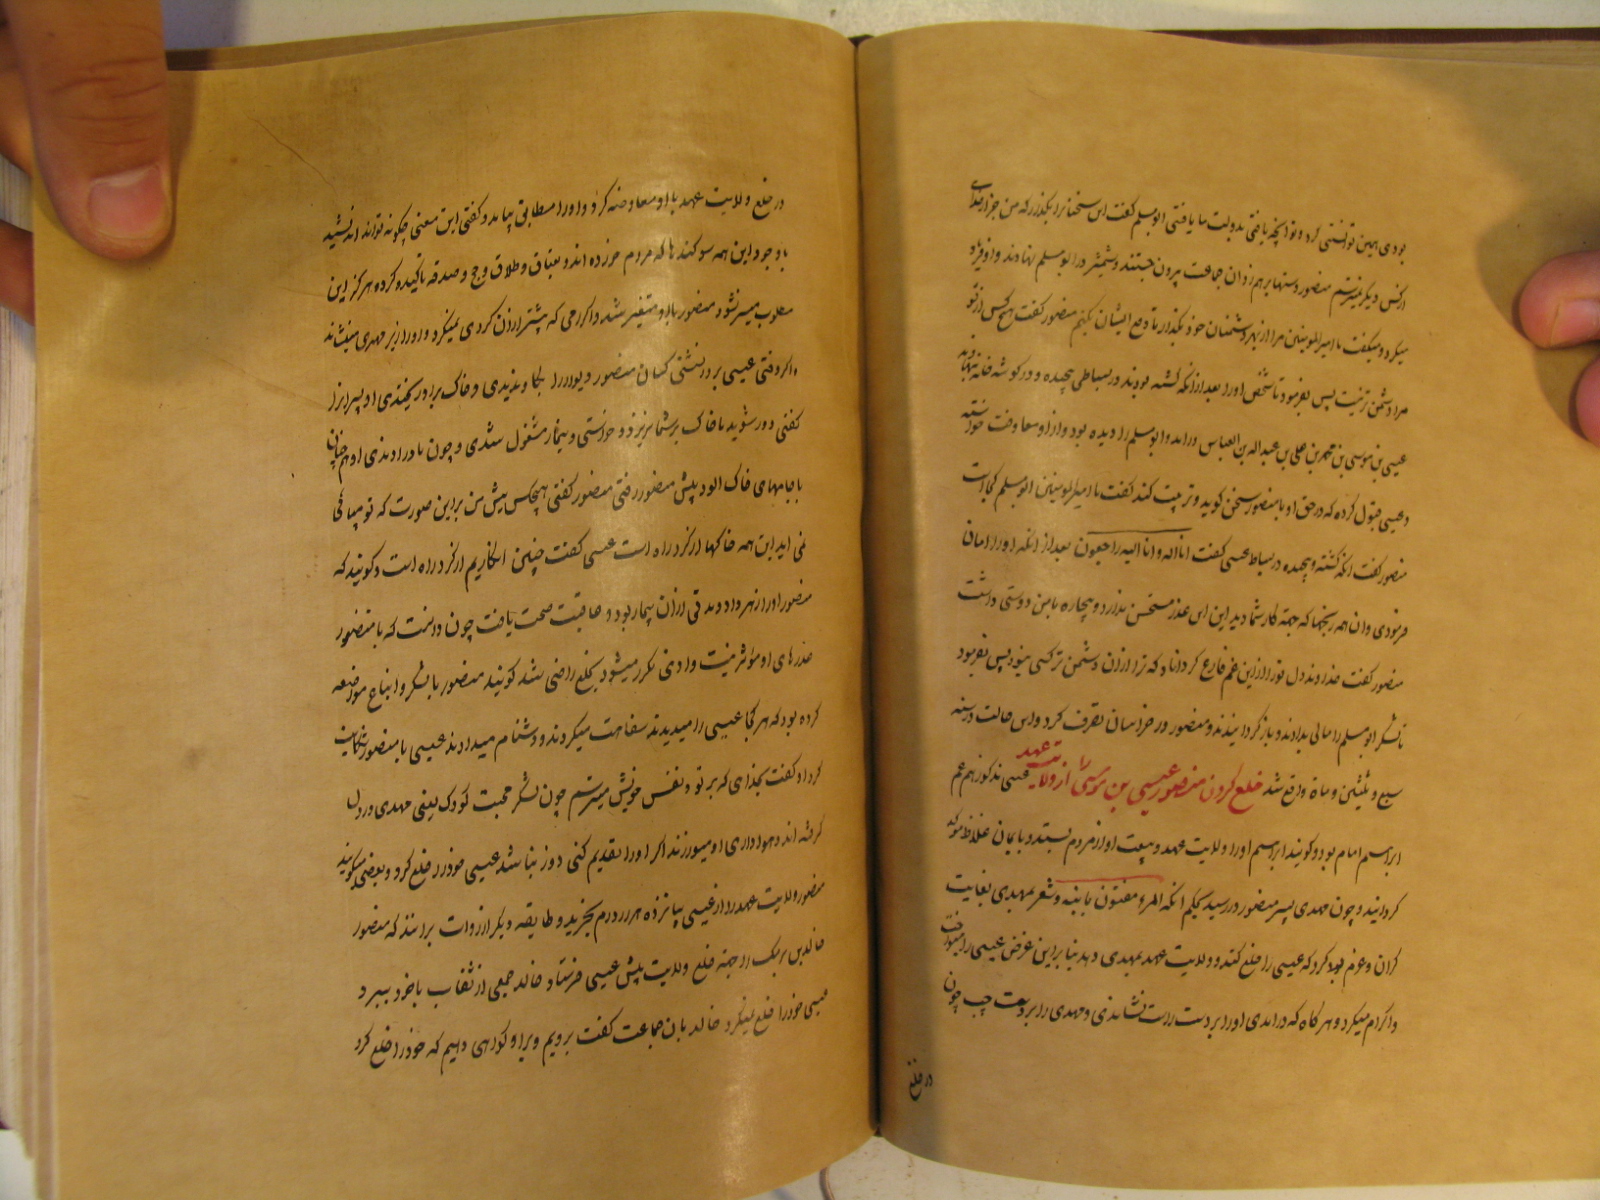 بودی همین توانستی کرد و تو آنچه یافتی بدولت ما یافتی ابومسلم گفت این سخنان را بگذار که من جز از خدای
از کس دیگر نمیترسم منصور دستها برهم زد آن جماعت بیرون جستند و شمشیر در ابومسلم نهادند و او فریاد
میکرد و میگفت یا امیرالمومنین مرا از بهر دشمنان خود بگذار تا دفع ایشان بکنم منصور گفت هیچکس از تو
مرا دشمن تر نیست پس بفرمود تا شخص او را بعد از آنکه کشته بودند در بساطی پیچیده و در گوشه خانه نهادند
عیسی بن موسی بن محمد بن علی بن عبدالله بن العباس درآمد و ابومسلم را دیده بود و از او معاونت خواسته
و عیسی قبول کرده که در حق او با منصور سخن گوید و تربیت کند گفت یا امیرالمومنین ابومسلم کجاست
منصور گفت آنکه کشته و پیچیده در بساط عیسی گفت انا لله و انا الیه راجعون بعد از آنکه او را امان
فرمودی و آن همه رنجها که جهة کار شما دید این اس عذر مستحسن ندارد و بیچاره با من دوستی داشت
منصور گفت خداوند دل تو را از این غم فارغ گرداناد که ترا از آن دشمن تر کسی نبود پس بفرمود
تا لشکر ابومسلم را مالی بدادند و باز گردانیدند و منصور در خراسان تصرف کرد و این حالت در سنه
سبع و ثلثین و مأة واقع شد خلع کردن منصور عیسی بن موسی را از ولایت عهد عیسی مذکور هم عم
ابراهیم امام بود و گویند ابراهیم او را ولایت عهد و بیعت او از مردم بستد و بایمان غلاظ موکد
گردانید و چون مهدی پسر منصور در رسید بحکم آنکه المرء مفتون بابنه و شعر بمهدی بغایت
گران و عزم بود کرد که عیسی را خلع کند و ولایت عهد بمهدی دهد بنا براین غرض عیسی را مینواخت
و اکرام میکرد و هر گاه که درآمدی او را بر دست راست نشاندی و مهدی را بر دست چپ چون
در خلع
در خلع ولایت عهد با او معاوضه کرد و او را مطابق نیامد و گفتی این معنی چگونه توانند اندیشید
با وجود این همه سوگندها که مردم خورده اند و بعتاق و طلاق و حج و صدقه تاکید کرده هرگز این
مطلوب میسر نشود منصور با او متغیر شد و اکرامی که پیشتر از آن کردی نمیکرد و او را زیر مهدی مینشاند
و اگر وقتی عیسی بر در نشستی کسان منصور دیوار را بجاویدندی و خاک بر او ریختندی او پسران را
گفتی دور شوید تا خاک بر شما نریزد و خواستی و بنماز مشغول شدی و چون بار دادندی او همچنان
با جامهای خاک آلود پیش منصور رفتی منصور گفتی هیچکس پیش من براین صورت که تو میآئی
نمی آید این همه خاکها از گرد راه است عیسی گفت چنین انگاریم از گرد راه است و گویند که
منصور او را زهر داد و مدتی از آن بیمار بود و عاقبت صحت یافت چون دانست که با منصور
عذرهای او مؤثر نیست و اذی مکرر میشود بخلع راضی شد گویند منصور با لشکر و اتباع مواضعه
کرده بود که هر کجا عیسی را میدیدند سفاهت میکردند و دشنام میدادند عیسی با منصور شکایت
کرد او گفت بخدای که بر تو و نفس خویش میترسم چون لشکر محبت کودک یعنی مهدی در دل
گرفته اند و هواداری او میورزند اگر او را تقدیم کنی دور نباشد عیسی خود را خلع کرد و بعضی میگویند
منصور ولایت عهد را از عیسی بپانزده هزار درم بخرید و طایفه دیگر از روات برانند که منصور
خالد بن برمک را جهة خلع ولایت پیش عیسی فرستاد خالد جمعی از ثقات با خود ببرد
عیسی خود را خلع نمیکرد خالد بآن جماعت گفت برویم و بر او گواهی دهیم که خود را خلع کرد